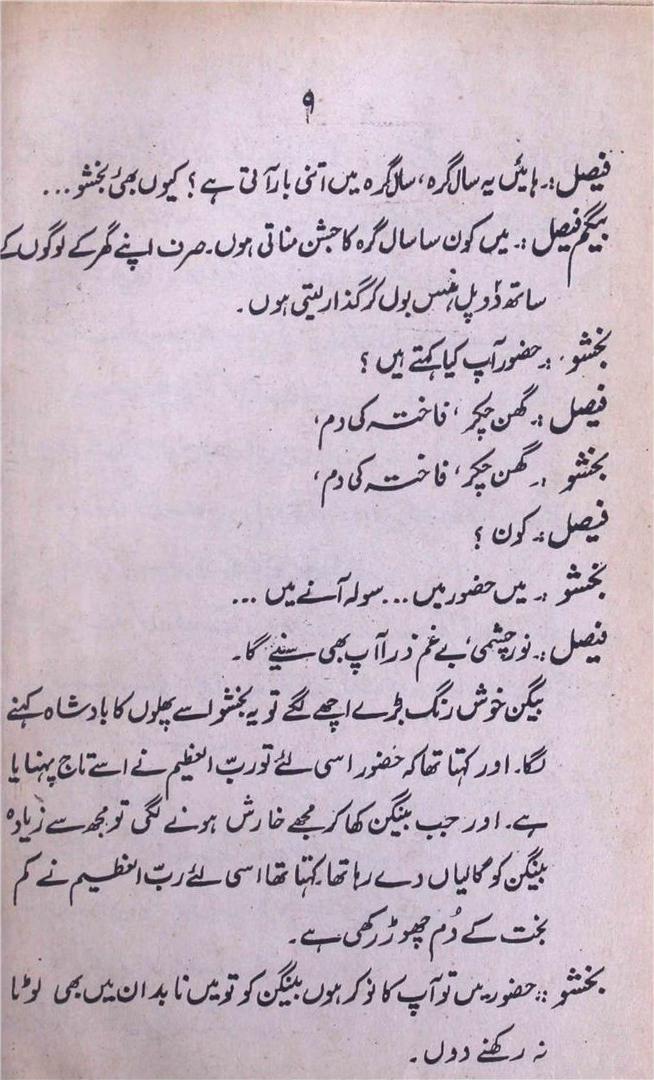 ۹
فیصل :۔ ہائیں یہ سال گرہ، سال گرہ میں اتنی بار آتی ہے ؟ کیوں بھئ بخشو ...
بیگم فیصل :۔ میں کون سا سال گرہ کا جشن مناتی ہوں۔ صرف اپنے گھر کے لوگوں کے
ساتھ دو پل ہنس بول کر گذار لیتی ہوں۔
بخشو :۔ حضور آپ کیا کہتے ہیں ؟
فیصل :۔ گھن چکر ، فاختہ کی دم ،
بخشو :۔ گھن چکر ، فاختہ کی دم ،
فیصل :۔ کون ؟
بخشو :۔ میں حضور میں ... سولہ آنے میں ...
فیصل :۔ نور چشمی ، بے غم ذرا آپ بھی سنیے گا۔
بیگن خوش رنگ بڑے اچھے لگے تو یہ بخشو اسے پھلوں کا بادشاہ کہنے
لگا۔ اور کہتا تھا کہ حضور اسی لئے تو ربّ العظیم نے اسے تاج پہنایا
ہے۔ اور جب بینگن کھا کر مجھے خارش ہونے لگی تو مجھ سے زیادہ
بینگن کو گالیاں دے رہا تھا۔ کہتا تھا اسی لئے ربّ العظیم نے کم
بخت کے دُم چھوڑ رکھی ہے۔
بخشو :: حضور میں تو آپ کا نوکر ہوں بینگن کو تو میں نابدان میں بھی لوٹا
نہ رکھنے دوں۔